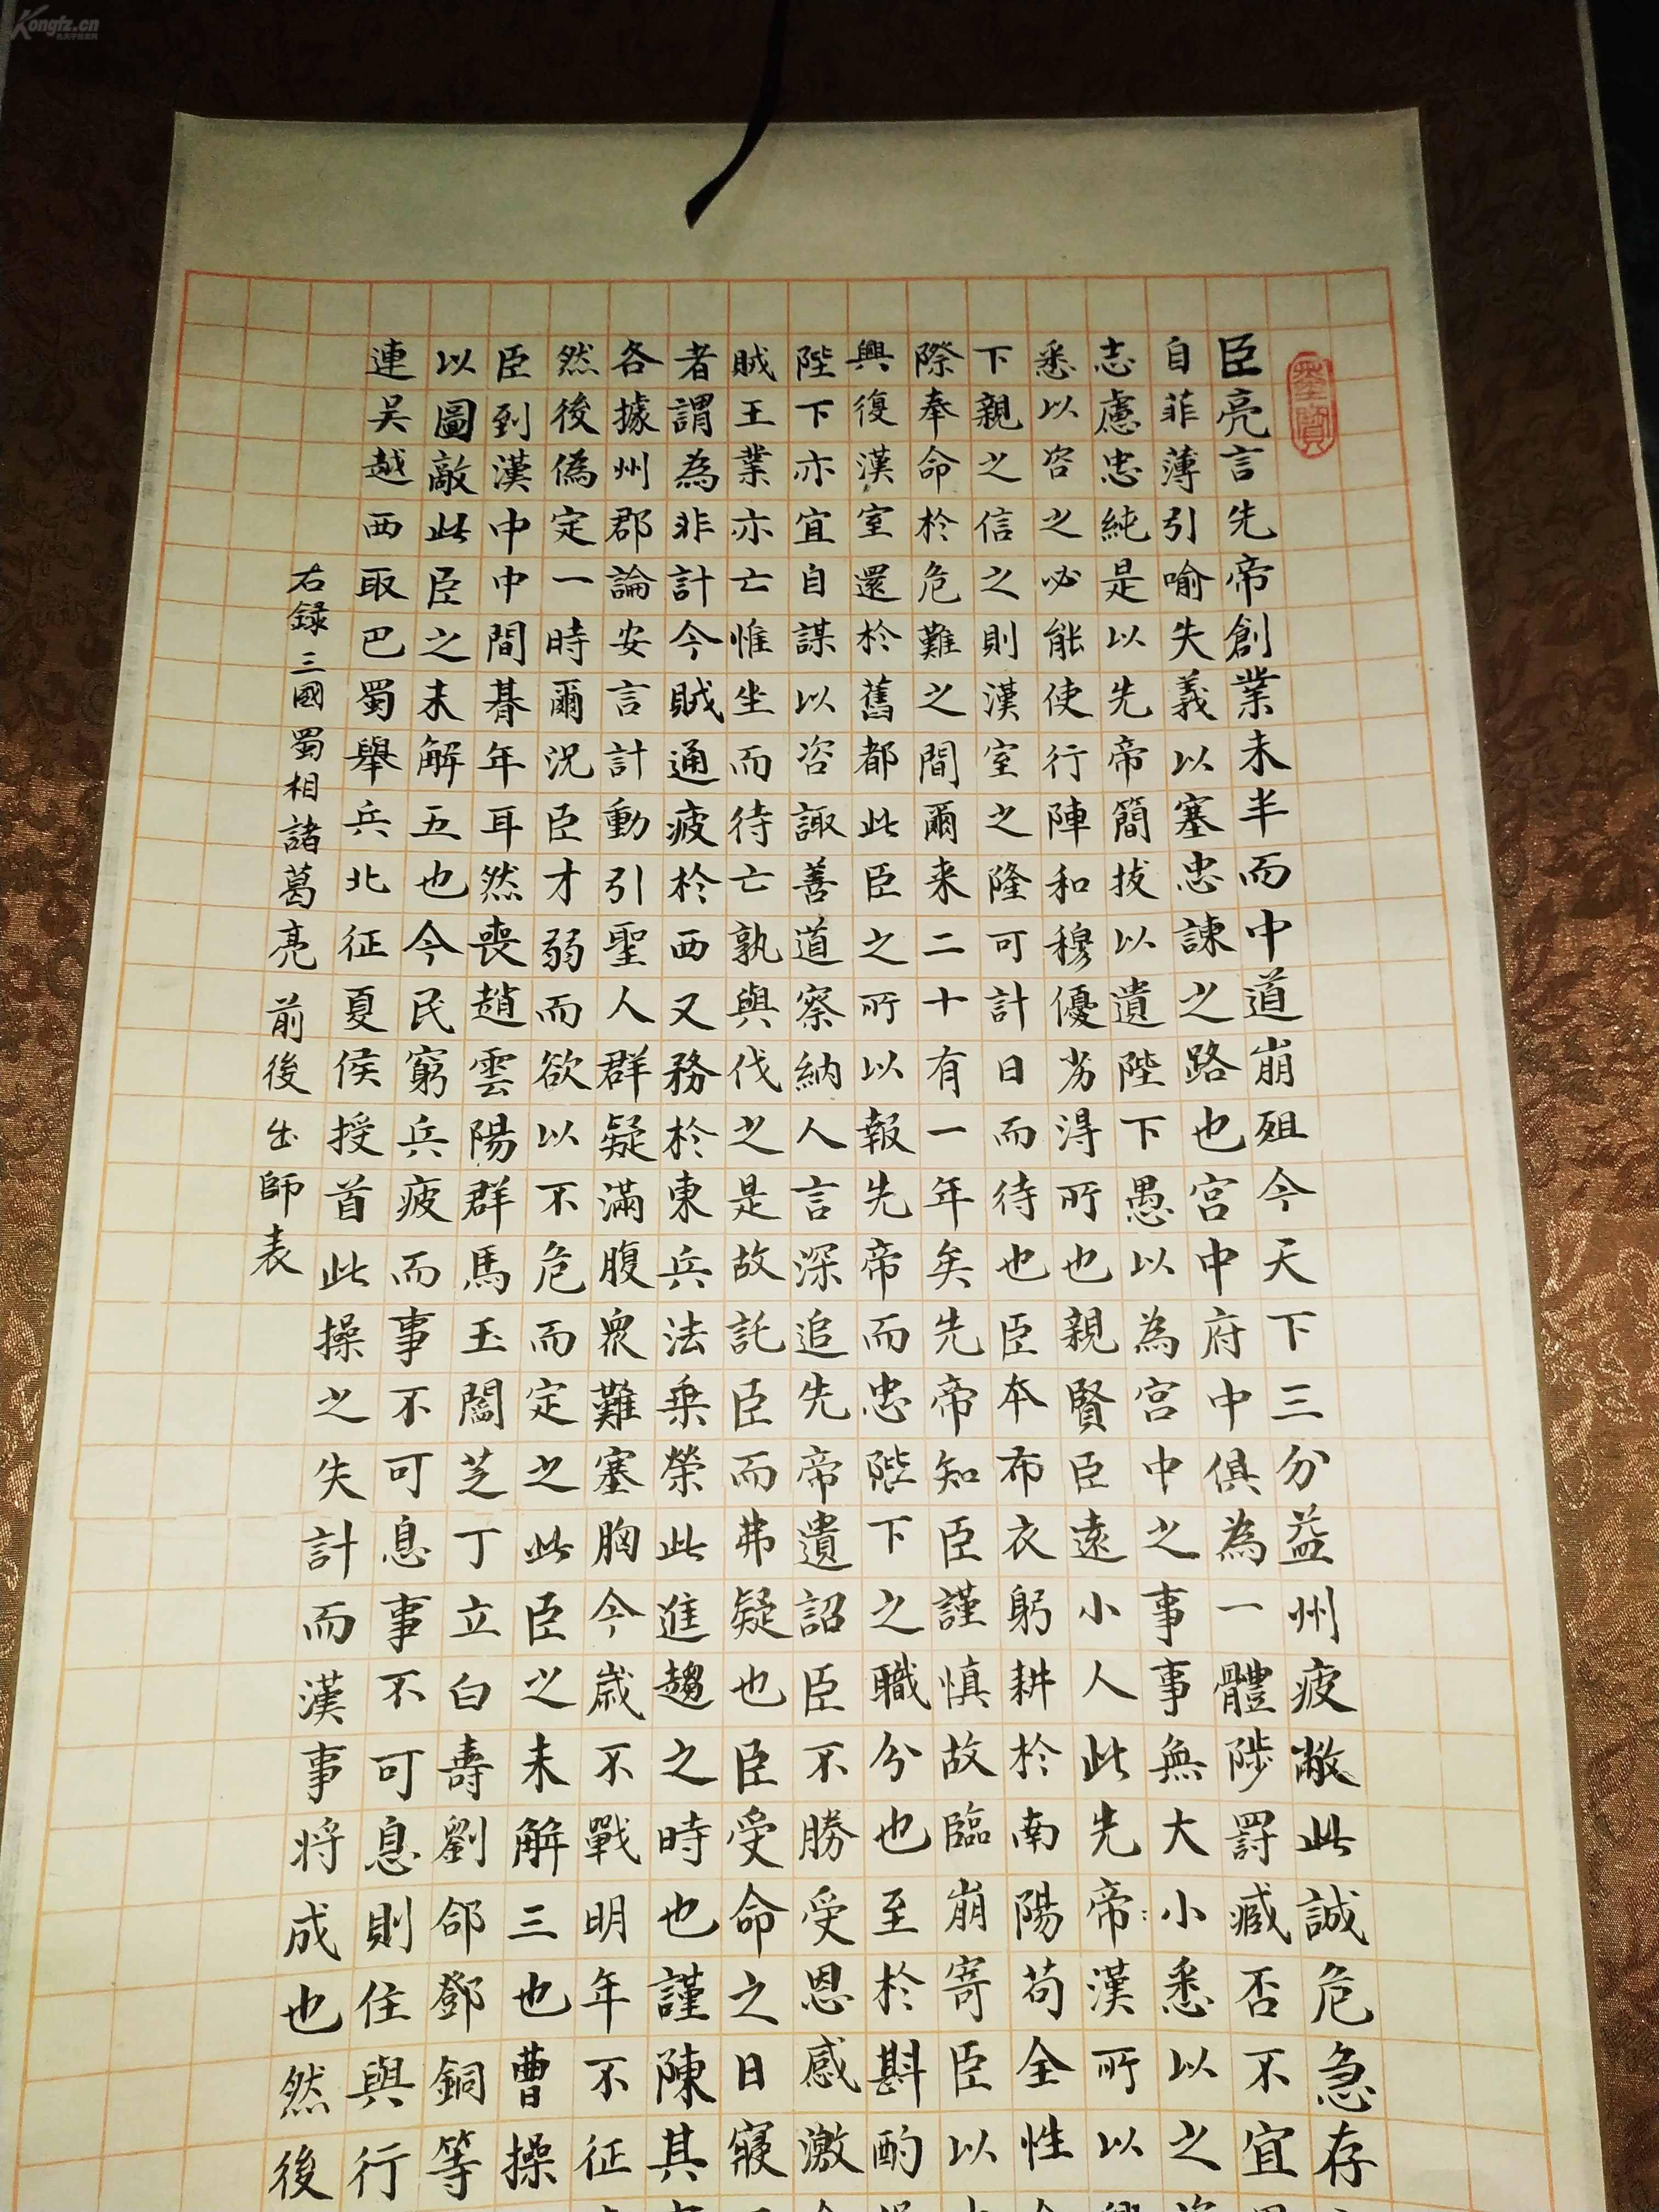 Kongfz.cn
臣亮言先帝創業未半而中道崩殂今天下三分益州疲敝此誠危急存
自菲薄引喻失義以塞忠諫之路也宮中府中俱為一體陟罰臧否不宜
志慮忠純是以先帝簡拔以遺陛下愚以為宮中之事事無大小悉以之
悉以咨之必能使行陣和穆優劣得所也親賢臣遠小人此先帝漢所以
下親之信之則漢室之隆可計日而待也臣本布衣躬耕於南陽苟全性
際奉命於危難之間爾来二十有一年矣先帝知臣謹慎故臨崩寄臣以
興復漢室還於舊都此臣之所以報先帝而忠陛下之職分也至於斟酌
陛下亦宜自謀以咨諏善道察納人言深追先帝遺詔臣不勝受恩感激
賊王業亦亡惟坐而待亡孰與伐之是故託臣而弗疑也臣受命之日寢
者謂為非計今賊通疲於西又務於東兵法乗榮此進趨之時也謹陳其
各據州郡論安言計動引聖人群疑滿腹衆難塞胸今歲不戰明年不征
然後偽定一時爾況臣才弱而欲以不危而定之此臣之未解三也曹操
臣到漢中中間朞年耳然喪趙雲陽群馬玉閻芝丁立白壽劉郃鄧銅等
以圖敵此臣之未解五也今民窮兵疲而事不可息事不可息則住與行
連吳越西取巴蜀舉兵北征夏侯授首此操之失計而漢事将成也然後
右録三國蜀相諸葛亮前後出師表